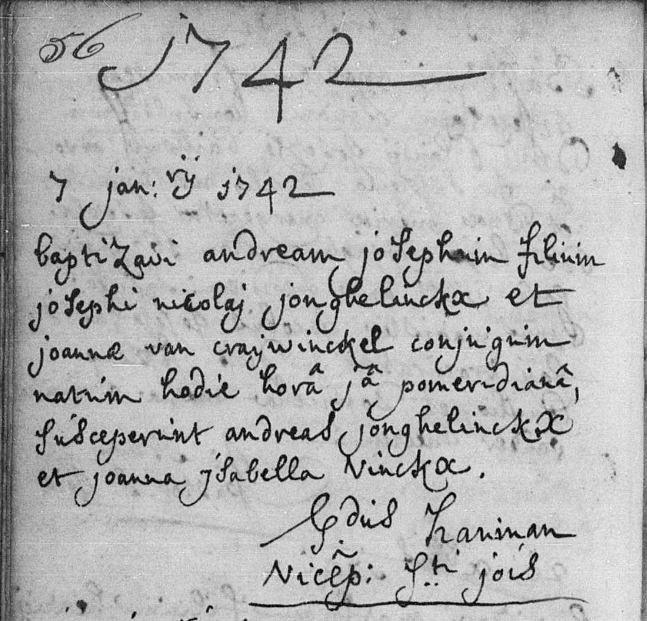 56 1742
7 jan: vij 1742
baptizavi andream josephum filium
josephi nicolaj jonghelinckx et
joannæ van craijwinckel conjugum
natum hodie horâ jâ pomeridianâ,
susceperunt andreas jonghelinckx
et joanna jsabella Vinckx.
Vicep: Sti jois